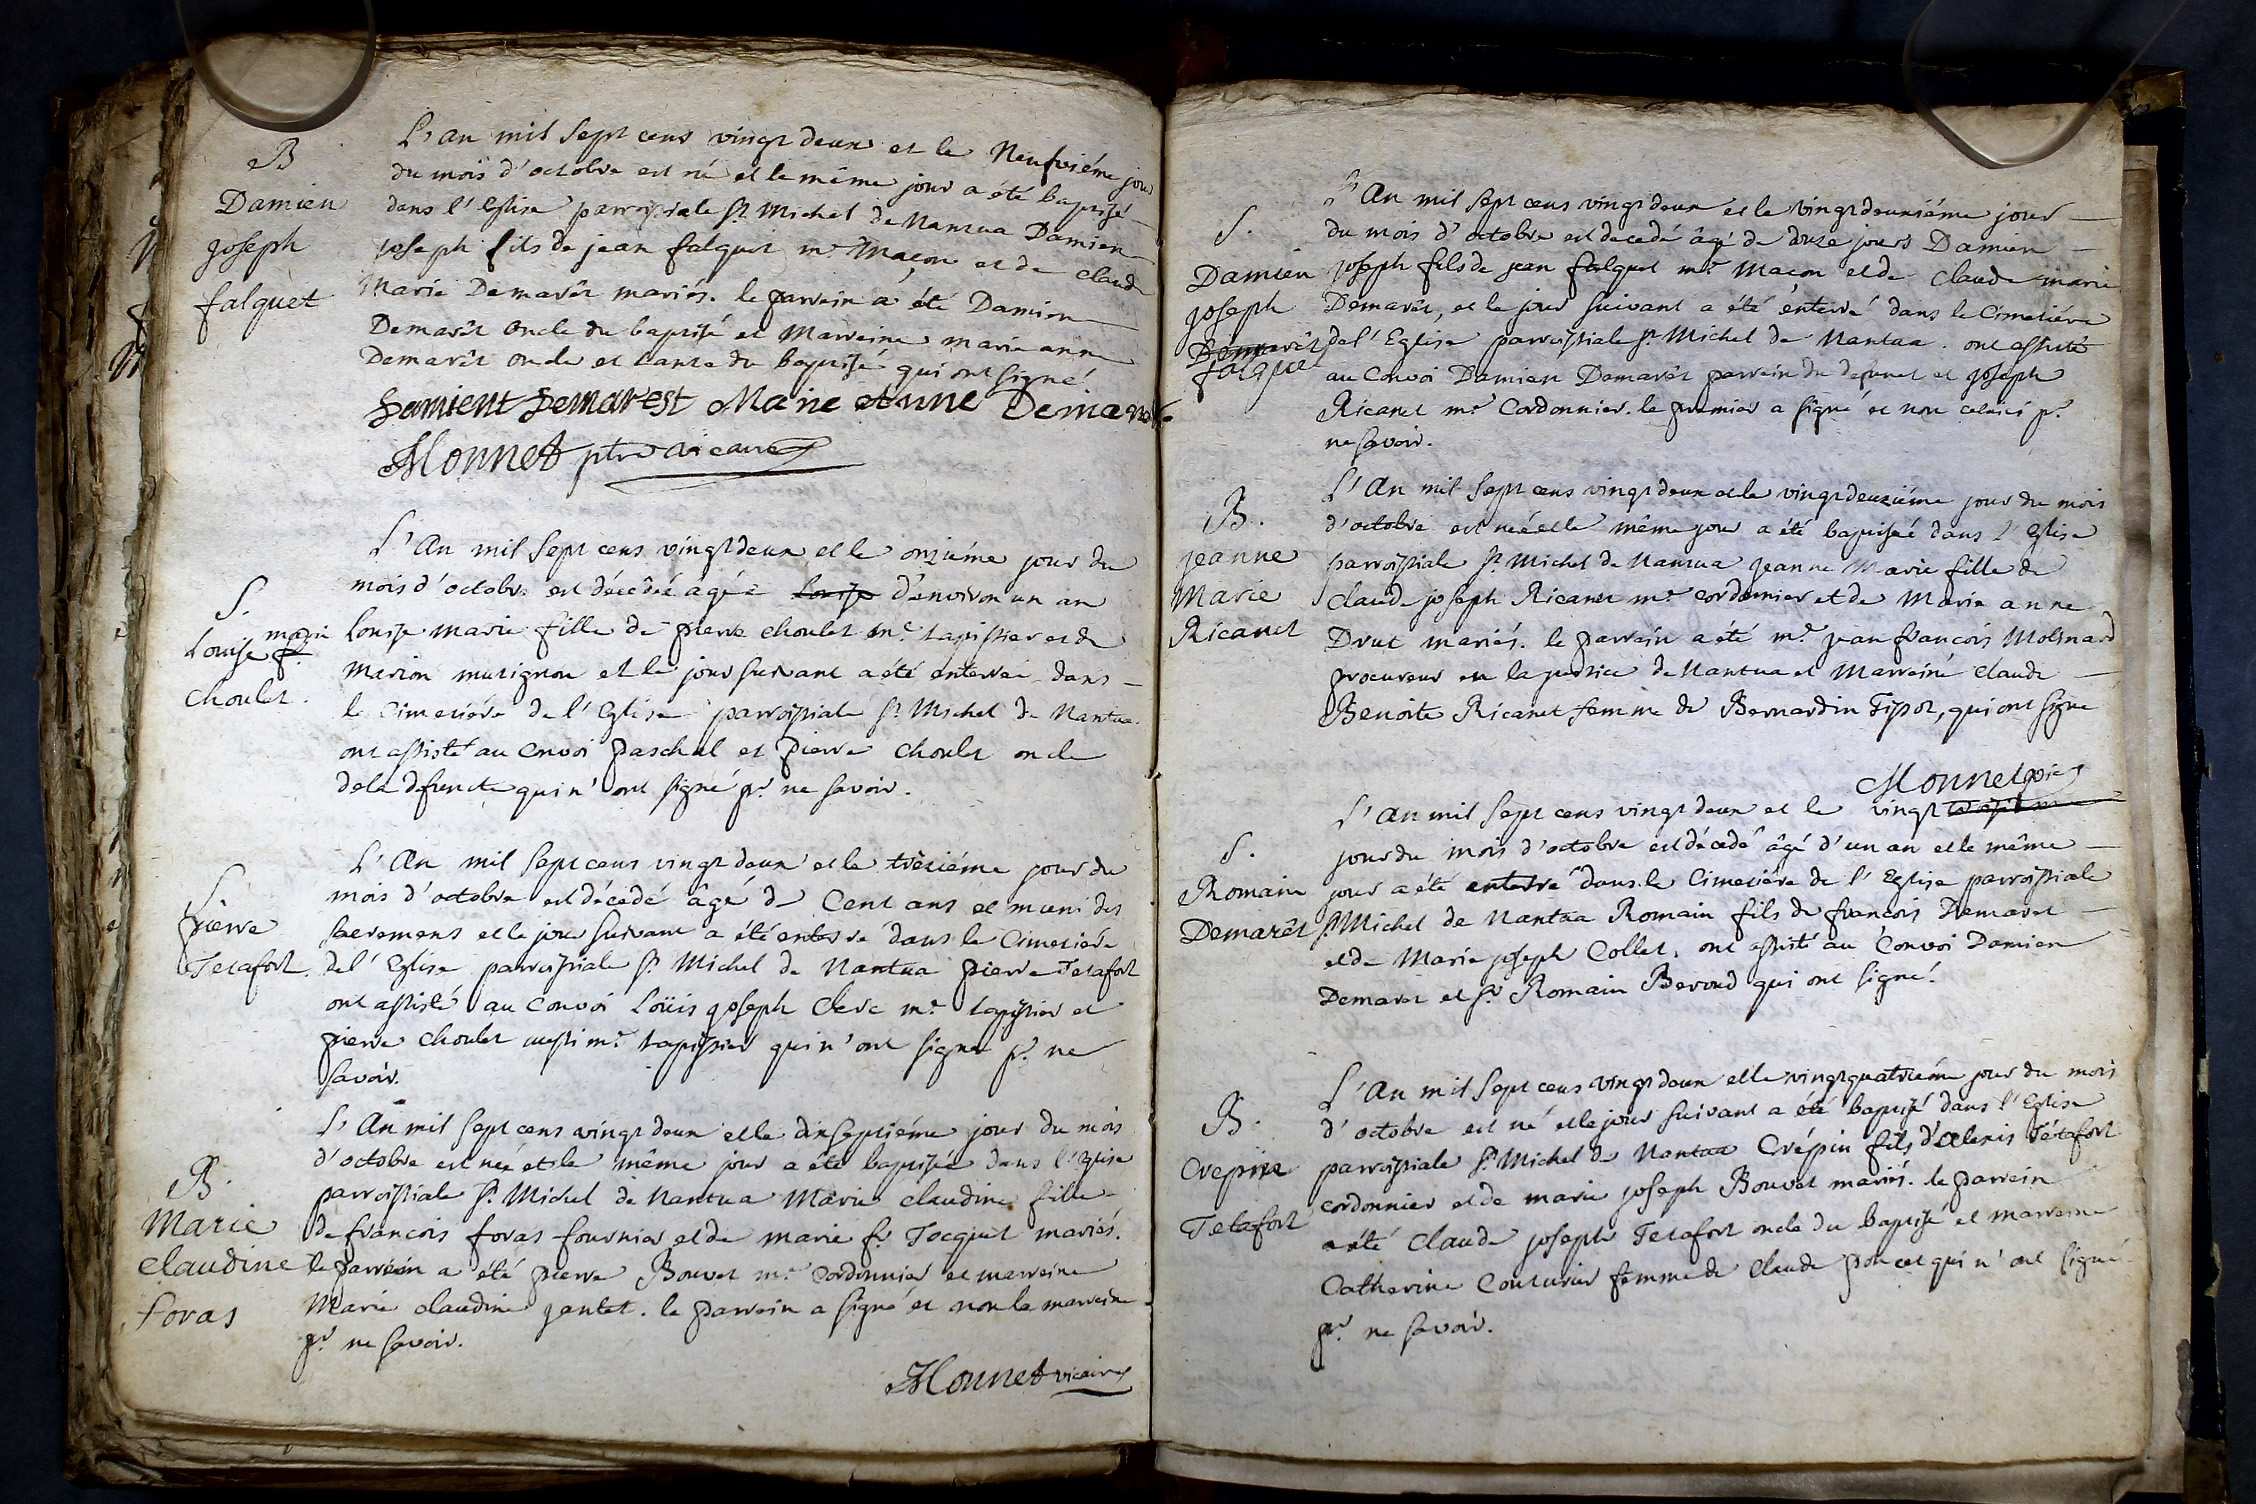 B
Damien
joseph
falquet
L'an mil sept cens vingt deux et le Neufviéme jour
du mois d'octobre est né et le même jour a été baptisé
dans l'Eglise parroissiale St. Michel de Nantua Damien
joseph fils de jean falquet mre. Maçon et de claude
Marie Demarêt mariés. le parrein a été Damien
Demarêt oncle du baptisé et Marreine marie anne
Demarêt oncle et tante du baptisé qui ont signé.
Damient Demarest Marie Anne Demarest
Monnet ptre vicaire
S.
Louise marie f.
Choulet.
L'An mil sept cens vingt deux et le onziéme jour du
mois d'octobre est décédée agée Louise d'environ un an
Louise marie fille de pierre choulet Mre. tapissier et de
Marion musignon et le jour suivant a été enterrée dans
le Cimetiére de l'Eglise parroissiale St. Michel de Nantua.
ont assisté au Convoi paschal et pierre choulet oncle
de la defuncte qui n'ont signé pr. ne savoir.
S.
pierre
Tetafort
L'An mil sept cens vingt deux et le trèziéme jour du
mois d'octobre est décedé âgé de Cent ans et muni des
sacremens et le jour suivant a été enterré dans le Cimetiére
de l'Eglise parroissiale St. Michel de Nantua pierre Tetafort
ont assisté au Convoi Loüis joseph Clerc mre. tapissier et
pierre choulet aussi mre. tapissier qui n'ont signé pr. ne
savoir.
B.
Marie
Claudine
foras
L'An mil sept cens vingt deux et le dixseptiéme jour du mois
d'octobre est née et le même jour a été baptisée dans l'Eglise
parroissiale St. Michel de Nantua Marie claudine fille
de françois foras fournier et de marie fr. Jocquet mariés.
le parrein a été pierre Bouvet mre. Cordonnier et marreine
Marie claudine jentet. le parrein a signé et non la marreine
pr. ne savoir.
Monnet vicaire
S.
Damien
joseph
Demarêt
falquet
L'An mil sept cens vingt deux et le vingtdeuxiéme jour
du mois d'octobre est decedé âgé de douze jours Damien
joseph fils de jean falquet mre. Maçon et de Claude marie
Demarêt, et le jour suivant a été enterré dans le Cimetiére
de l'Eglise parroissiale St. Michel de Nantua. ont assisté
au Convoi Damien Demarêt parrein du defunct et joseph
Ricanet mre. Cordonnier. le premier a signé et non celuici pr.
ne savoir.
B.
jeanne
Marie
Ricanet
L'An mil sept cens vingt deux et le vingtdeuxiéme jour du mois
d'octobre est née et le même jour a été baptisée dans l'Eglise
parroissiale St. Michel de Nantua jeanne Marie fille de
Claude joseph Ricanet mre. cordonnier et de Marie anne
Drut mariés. le parrein a été mre. jean françois Molinard
procureur en la justice de Nantua et Marreine Claude
Benoite Ricanet femme de Bernardin Tissot, qui ont signé
Monnet vic
S.
Romain
Demarêt
L'An mil sept cens vingt deux et le vingt troisiéme
jour du mois d'octobre est décedé âgé d'un an et le même
jour a été enterré dans le Cimetiére de l'Eglise parroissiale
St. Michel de Nantua Romain fils de françois Demaret
et de Marie joseph Collet. ont assisté au Convoi Damien
Demaret et Sr. Romain Beroud qui ont signé.
B.
Crepine
Tetafort
L'An mil sept cens vingt deux et le vingtquatriéme jour du mois
d'octobre est né et le jour suivant a été baptisé dans l'Eglise
parroissiale St. Michel de Nantua Crépin fils d'Alexis Tétafort
cordonnier et de marie joseph Bouvet mariés. le parrein
a été Claude joseph Tetafort oncle du baptisé et marreine
Catherine Couturier femme de Claude poncet qui n'ont signé
pr. ne savoir.